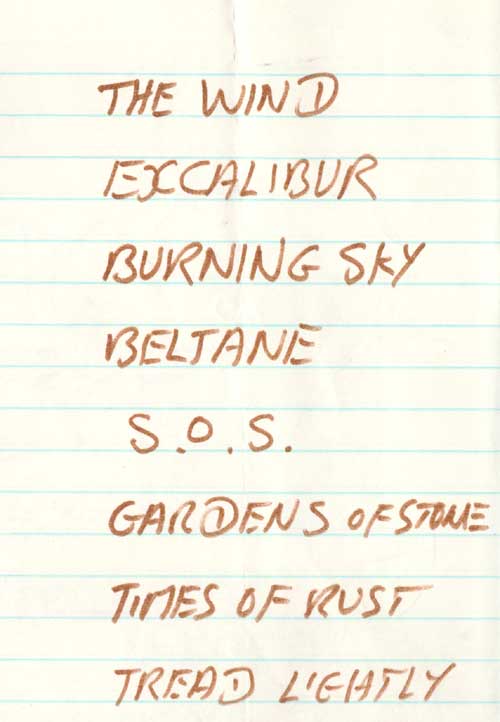 THE WIND
EXCALIBUR
BURNING SKY
BELTANE
S.O.S.
GARDENS OF STONE
TIMES OF RUST
TREAD LIGHTLY